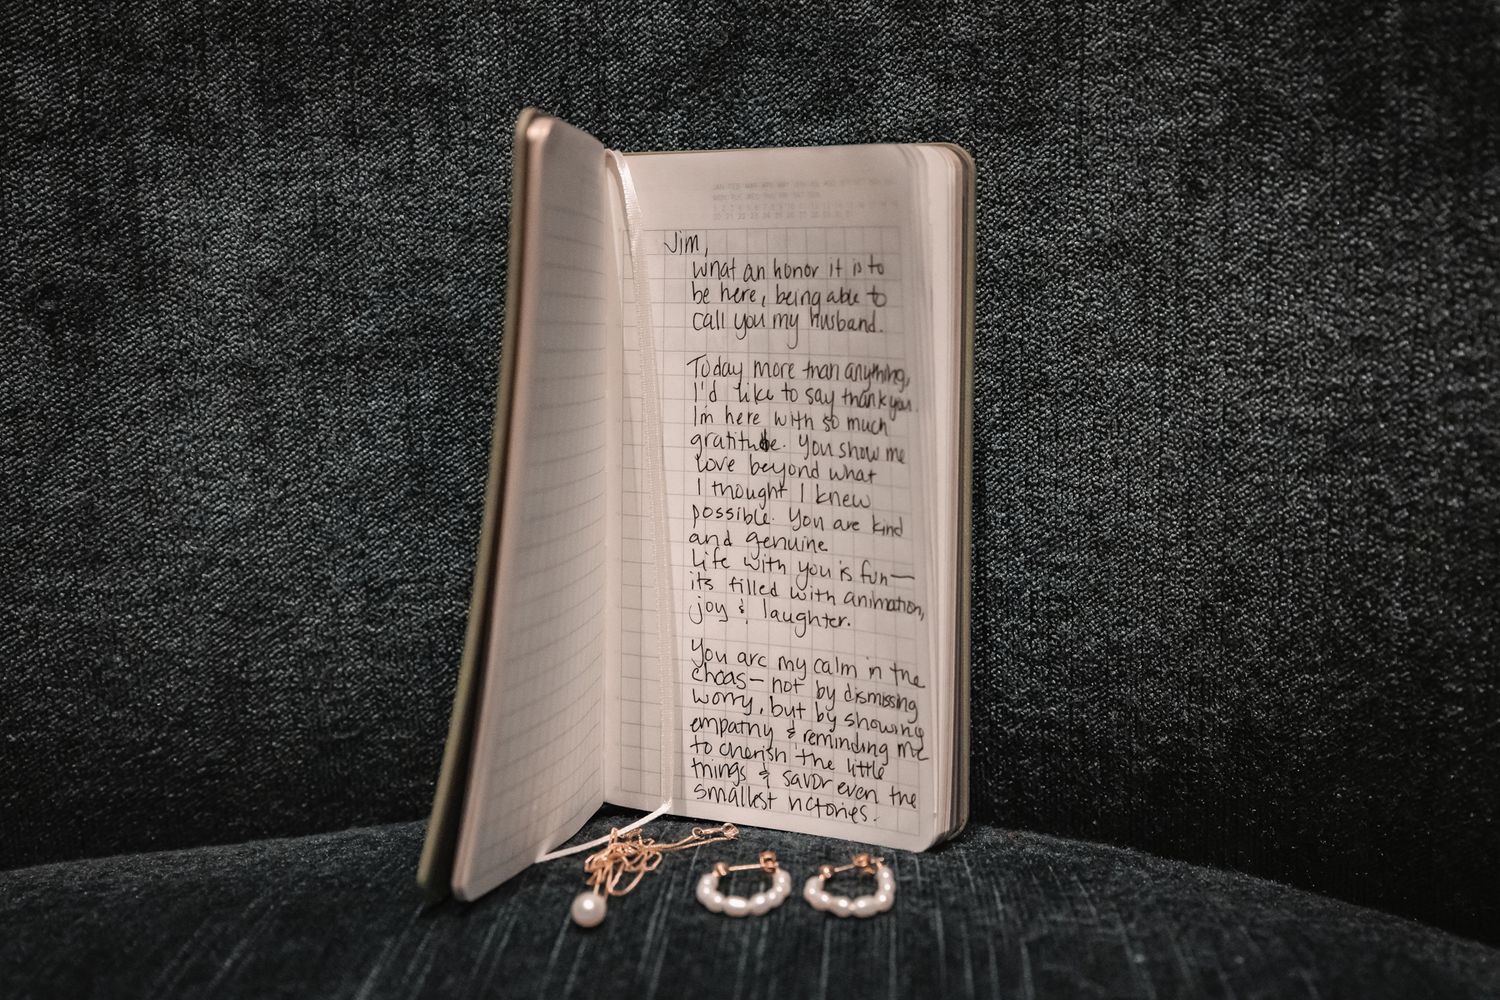 JAN FEB MAR APR MAY JUN JUL AUG SEP OCT NOV DEC
MON TUE WED THU FRI SAT SUN
Jim,
what an honor it is to
be here, being able to
call you my husband.
Today more than anything,
I'd like to say thank you.
Im here with so much
gratitude. You show me
love beyond what
I thought I knew
possible. You are kind
and genuine
Life with you is fun—
its filled with animation,
joy & laughter.
You are my calm in the
choas— not by dismissing
worry, but by showing
empathy & reminding me
to cherish the little
things & savor even the
smallest victories.